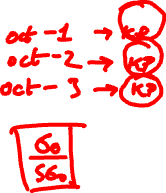 oct-1 → KP
oct-2 → KP
oct-3 → KP
60
560